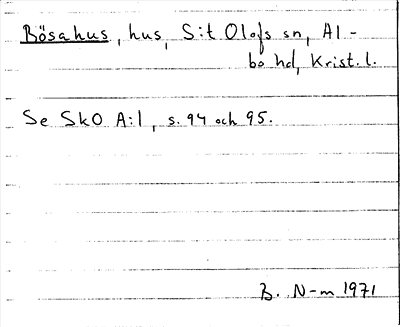 Bösahus, hus, S:t Olofs sn, Al-
bo hd, Krist. l.
Se SkO A:1, s. 94 och 95.
B. N-m 1971